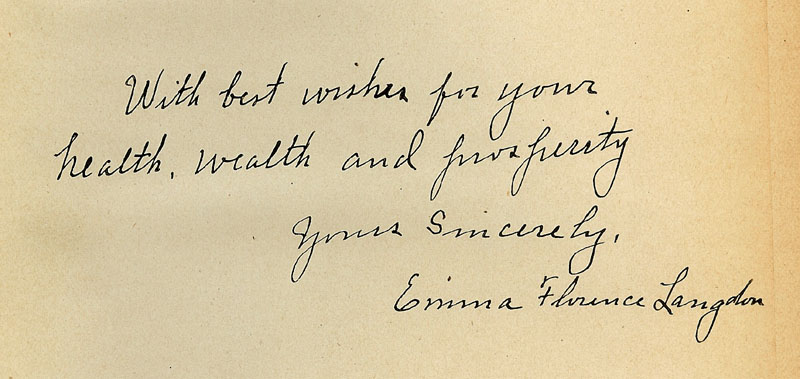 With best wishes for your
health, wealth and prosperity
Yours Sincerely,
Emma Florence Langdon